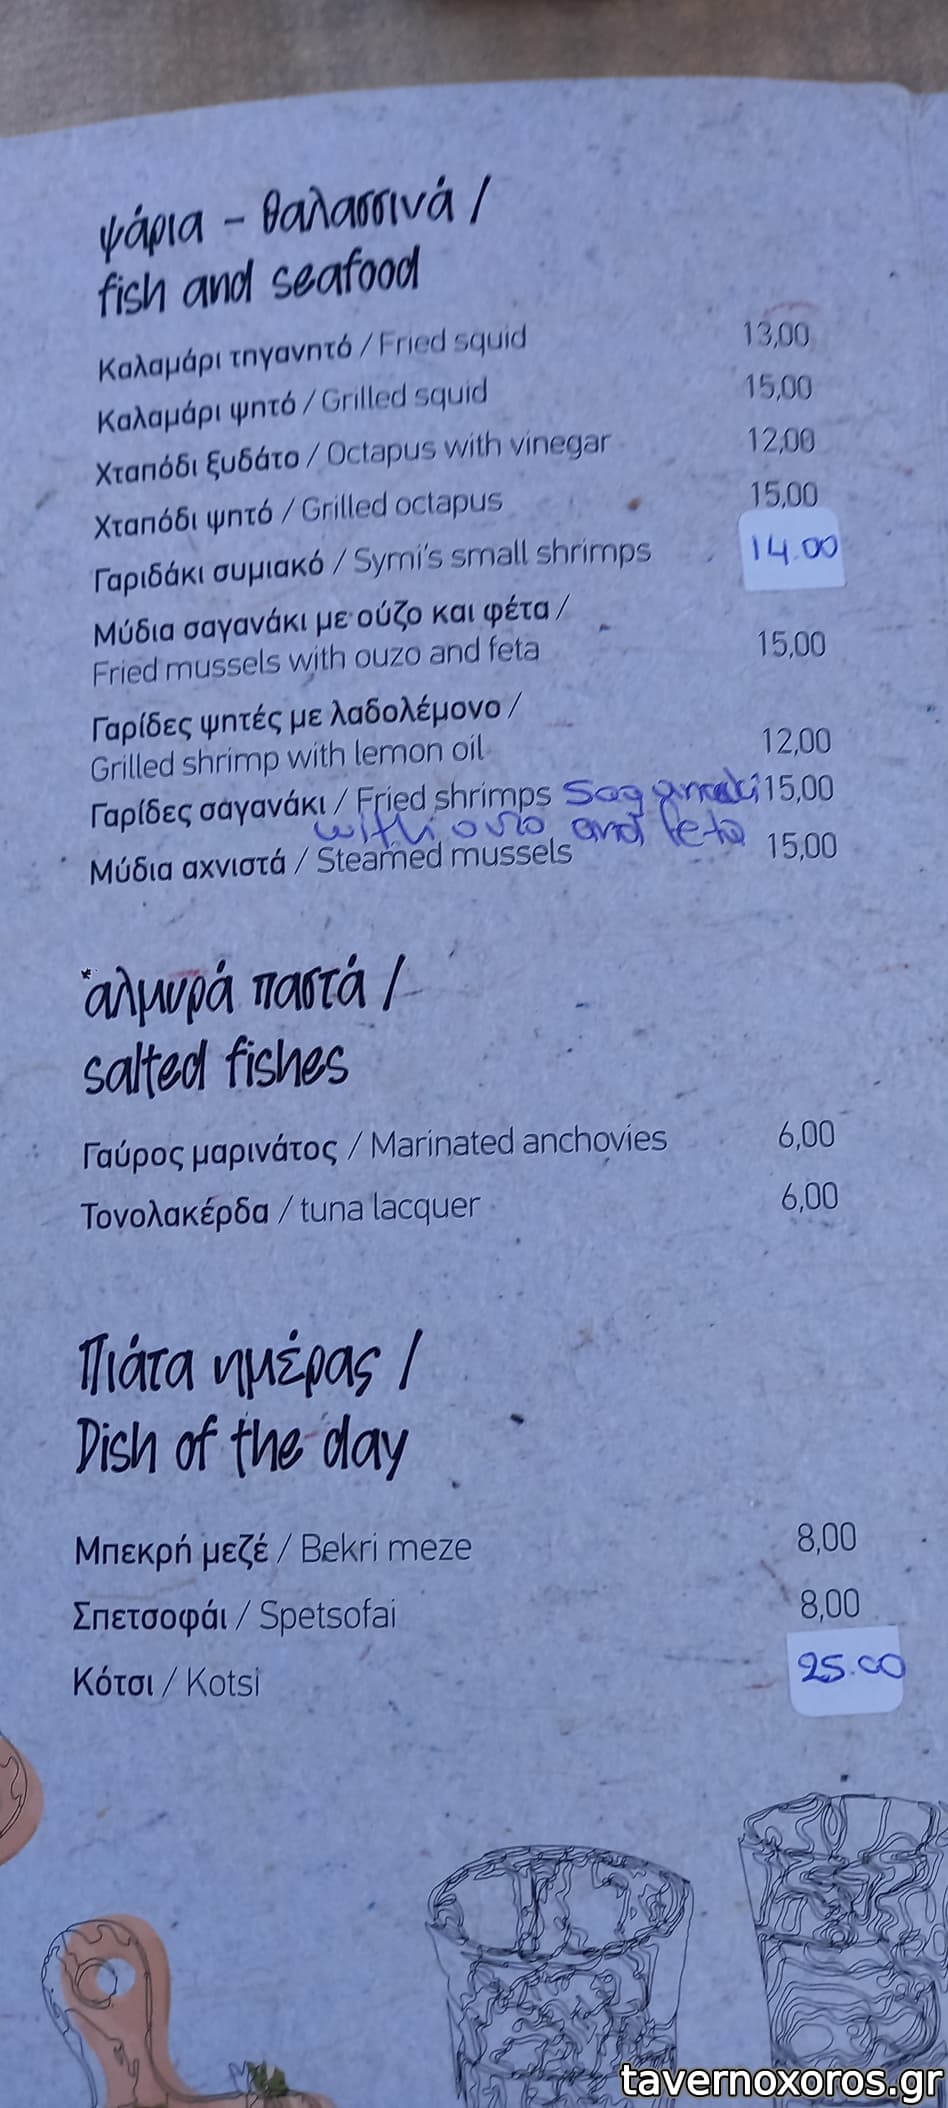 ψάρια - θαλασσινά /
fish and seafood
Καλαμάρι τηγανητό / Fried squid 13,00
Καλαμάρι ψητό / Grilled squid 15,00
Χταπόδι ξυδάτο / Octapus with vinegar 12,00
Χταπόδι ψητό / Grilled octapus 15,00
Γαριδάκι συμιακό / Symi's small shrimps 14.00
Μύδια σαγανάκι με ούζο και φέτα /
Fried mussels with ouzo and feta 15,00
Γαρίδες ψητές με λαδολέμονο /
Grilled shrimp with lemon oil 12,00
Γαρίδες σαγανάκι / Fried shrimps Saganaki 15,00
with ouzo and feta
Μύδια αχνιστά / Steamed mussels 15,00
*αλμυρά παστά /
salted fishes
Γαύρος μαρινάτος / Marinated anchovies 6,00
Τονολακέρδα / tuna lacquer 6,00
Πιάτα ημέρας /
Dish of the day
Μπεκρή μεζέ / Bekri meze 8,00
Σπετσοφάι / Spetsofai 8,00
Κότσι / Kotsi 25.00
tavernoxoros.gr